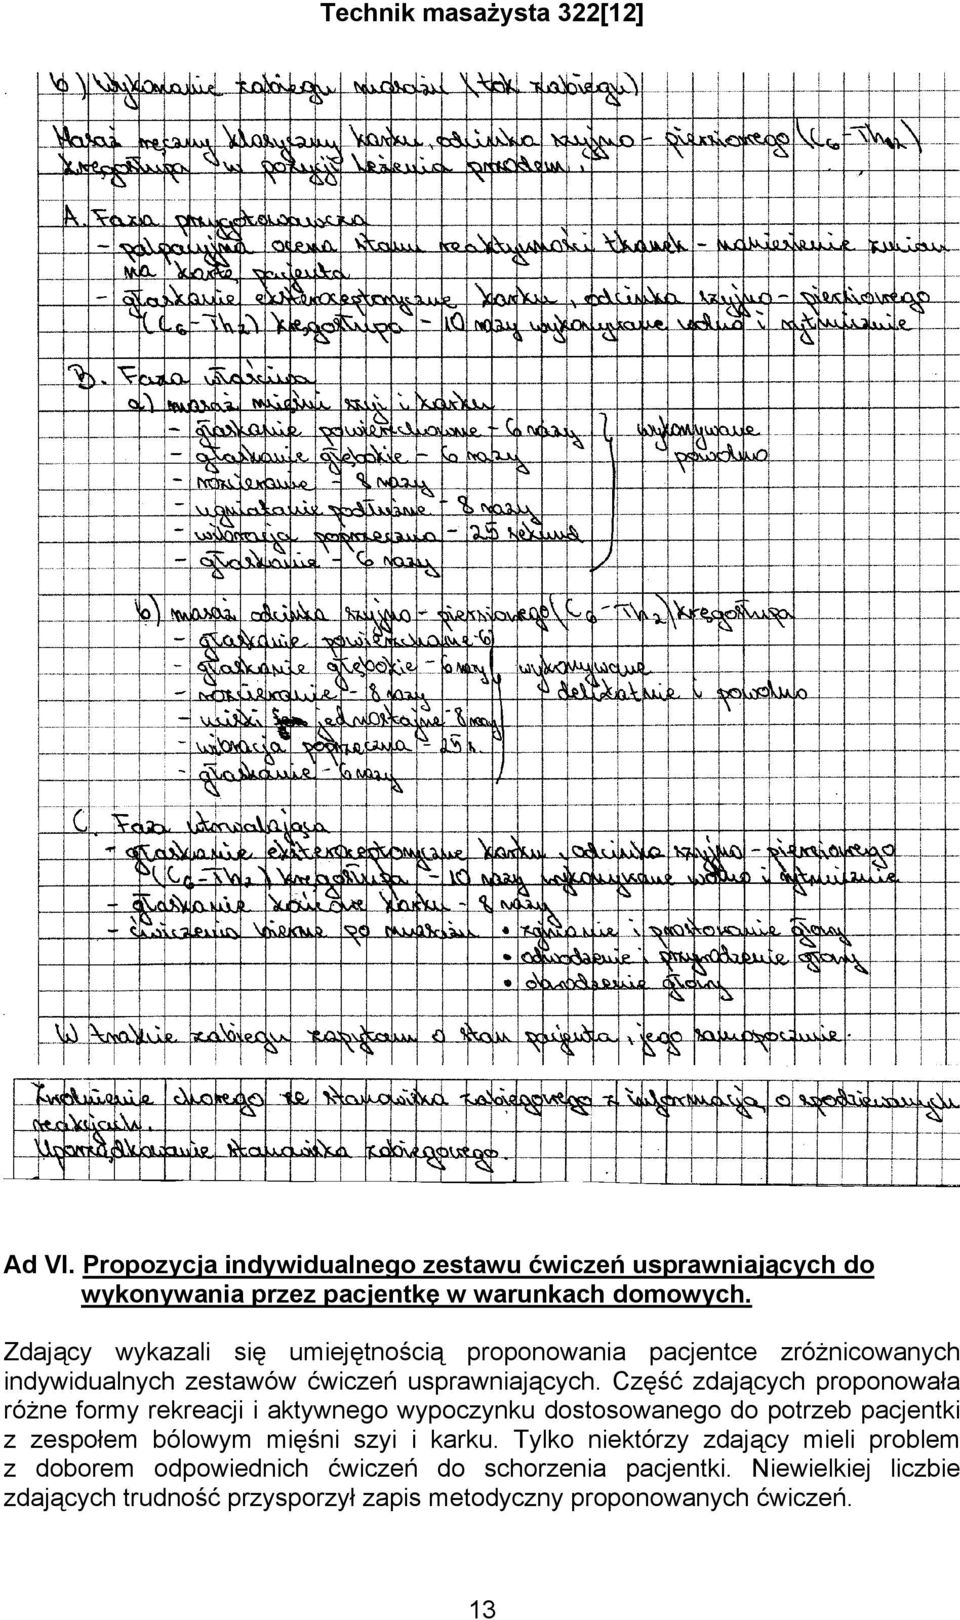 Technik masażysta 322[12]
b) Wykonanie zabiegu masażu (tok zabiegu)
Masaż ręczny klasyczny karku, odcinka szyjno - piersiowego (C6-Th2)
kręgosłupa w pozycji leżenia przodem.
A. Faza przygotowawcza
- palpacyjna ocena stanu reaktywności tkanek - naniesienie zmian
na kartę pacjenta
- głaskanie eksteroceptoryczne karku, odcinka szyjno - piersiowego
(C6-Th2) kręgosłupa - 10 razy wykonywane wolno i rytmicznie
B. Faza właściwa
a) masaż mięśni szyi i karku
- głaskanie powierzchowne - 6 razy } wykonywane
- głaskanie głębokie - 6 razy powolno
- rozcieranie - 8 razy
- ugniatanie podłużne - 8 razy
- wibracja poprzeczna - 25 sekund
- głaskanie - 6 razy
b) masaż odcinka szyjno - piersiowego (C6-Th2) kręgosłupa
- głaskanie powierzchowne - 6
- głaskanie głębokie - 6 razy wykonywane
- rozcieranie - 8 razy delikatnie i powolno
- uciski jednostajne - 8 razy
- wibracja poprzeczna - 25 s.
- głaskanie - 6 razy
C. Faza utrwalająca
- głaskanie eksteroceptoryczne karku, odcinka szyjno - piersiowego
(C6-Th2) kręgosłupa - 10 razy wykonywane wolno i rytmicznie
- głaskanie końcowe karku - 8 razy
- ćwiczenia bierne po masażu • zginanie i prostowanie głowy
• odwodzenie i przywodzenie głowy
• obwodzenie głowy
W trakcie zabiegu zapytam o stan pacjenta, jego samopoczucie.
Zwolnienie chorego ze stanowiska zabiegowego z informacją o spodziewanych
reakcjach.
Uporządkowanie stanowiska zabiegowego.
Ad VI. Propozycja indywidualnego zestawu ćwiczeń usprawniających do
wykonywania przez pacjentkę w warunkach domowych.
Zdający wykazali się umiejętnością proponowania pacjentce zróżnicowanych
indywidualnych zestawów ćwiczeń usprawniających. Część zdających proponowała
różne formy rekreacji i aktywnego wypoczynku dostosowanego do potrzeb pacjentki
z zespołem bólowym mięśni szyi i karku. Tylko niektórzy zdający mieli problem
z doborem odpowiednich ćwiczeń do schorzenia pacjentki. Niewielkiej liczbie
zdających trudność przysporzył zapis metodyczny proponowanych ćwiczeń.
13